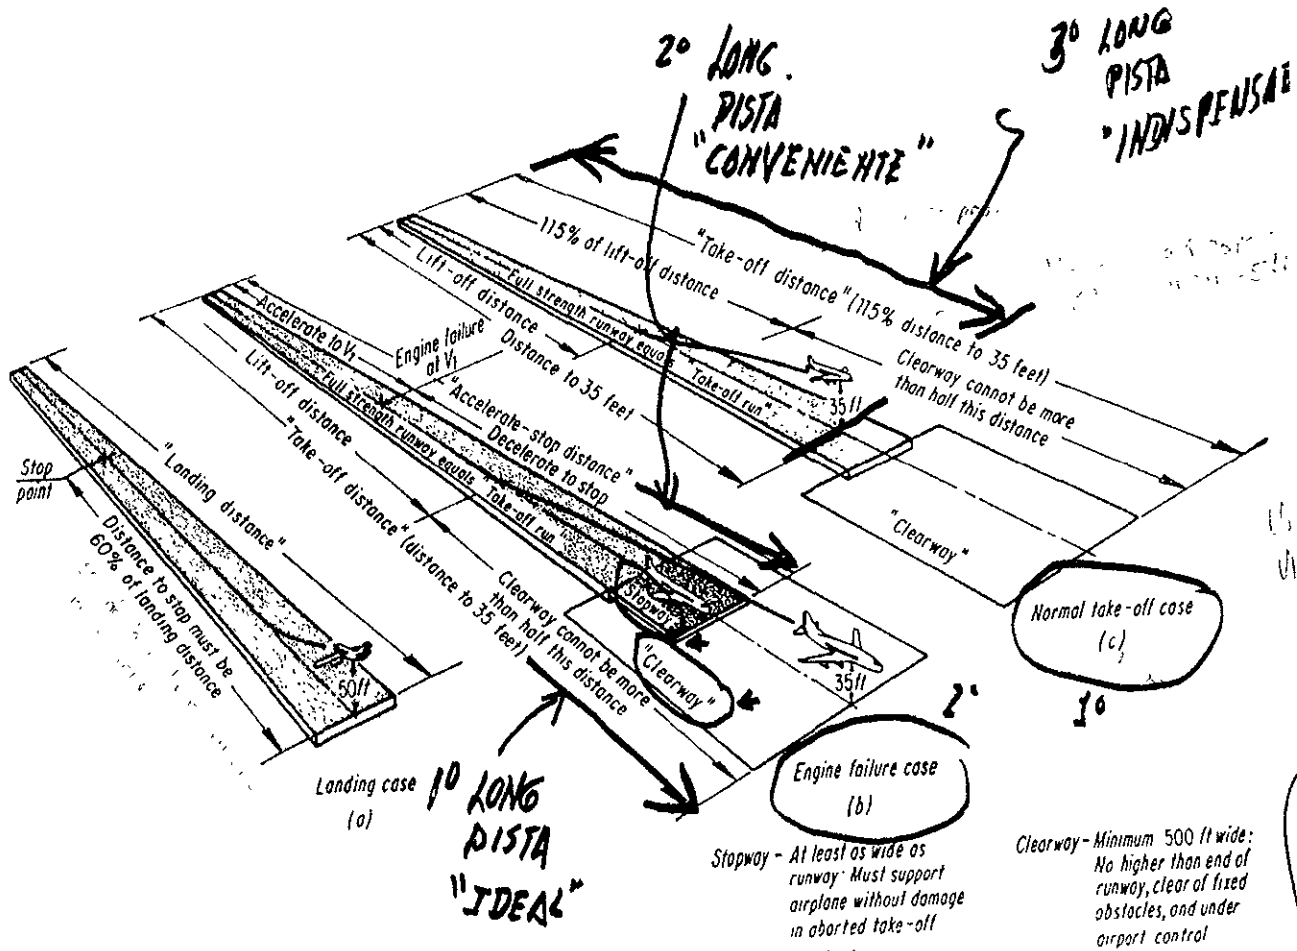 2º LONG.
PISTA
"CONVENIENTE"
3º LONG
PISTA
"INDISPENSA
"Take-off distance" (115% distance to 35 feet)
115% of lift-off distance
Clearway cannot be more
than half this distance
Lift-off distance
Distance to 35 feet
Full strength runway equals "Take-off run"
35 ft
"Clearway"
Normal take-off case
(c)
1º
Accelerate to V1
Engine failure
at V1
"Accelerate-stop distance"
Decelerate to stop
Full strength runway equals "Take-off run
Lift-off distance
"Take-off distance" (distance to 35 feet)
Clearway cannot be more
than half this distance
Stopway
"Clearway"
35 ft
Engine failure case
(b)
Stop
point
"Landing distance"
Distance to stop must be
60% of landing distance
50 ft
Landing case
(a)
1º LONG
PISTA
"IDEAL"
Stopway - At least as wide as
runway. Must support
airplane without damage
in aborted take-off
Clearway - Minimum 500 ft wide:
No higher than end of
runway, clear of fixed
obstacles, and under
airport control